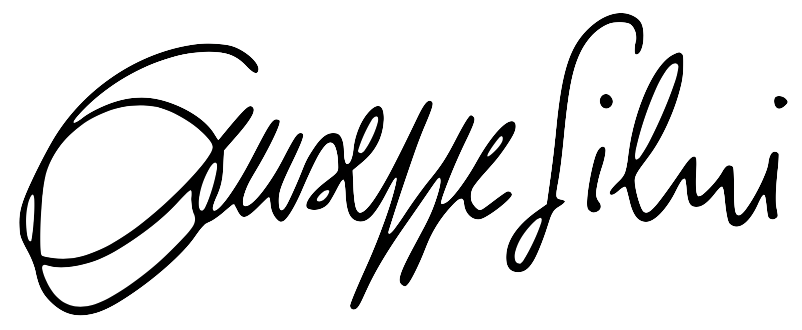 Giuseppe Silvi